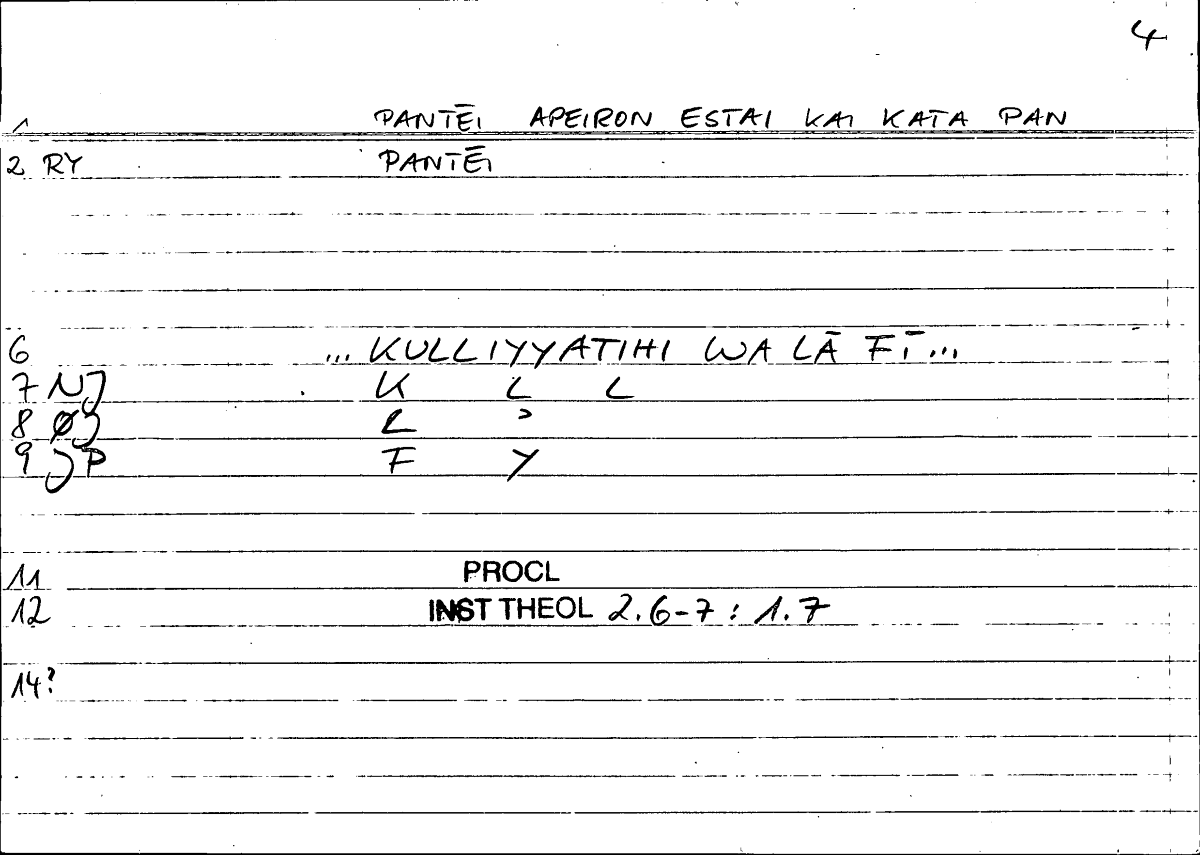 4
1 PANTĒI APEIRON ESTAI KAI KATA PAN
2 RY PANTĒI
6 ... KULLIYYATIHI WA LĀ FĪ ...
7 NJ K L L
8 ØJ L ʾ
9 JP F Y
11 PROCL
12 INST THEOL 2.6-7 : 1.7
14?